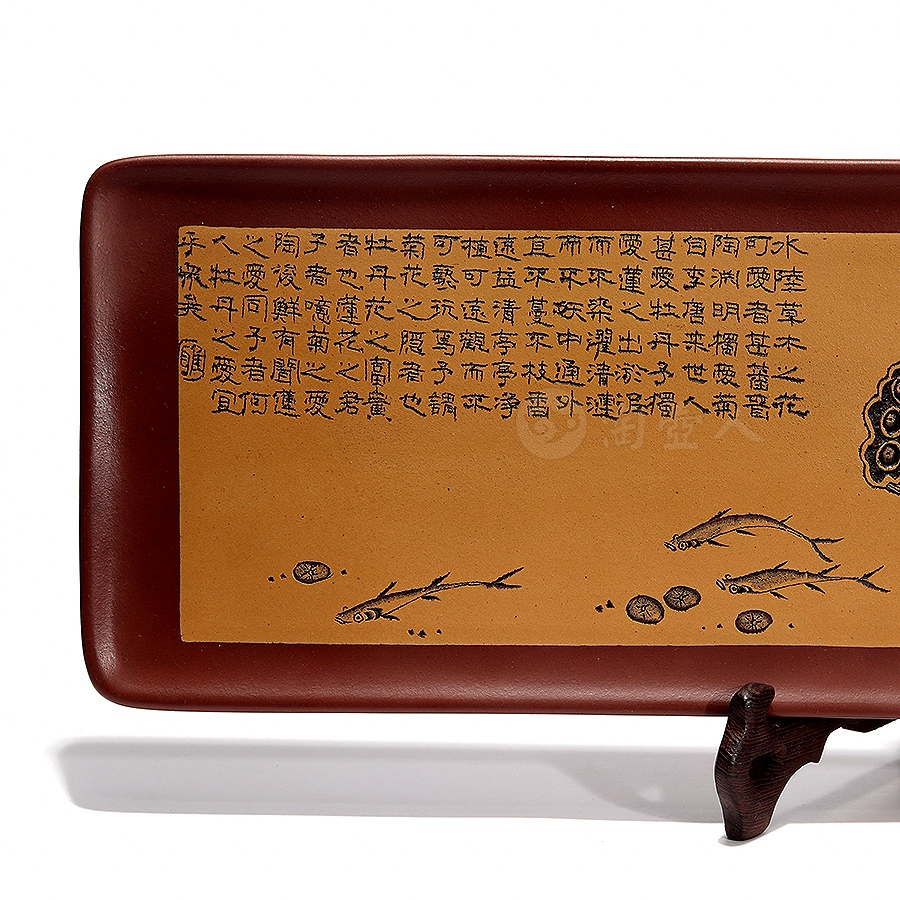 水陸草木之花
可愛者甚蕃晉
陶淵明獨愛菊
自李唐來世人
甚愛牡丹予獨
愛蓮之出於泥
而不染濯清漣
而不妖中通外
直不蔓不枝香
遠益清亭亭淨
植可遠觀而不
可褻玩焉予謂
菊花之隱者也
牡丹花之富貴
者也蓮花之君
子者噫菊之愛
陶後鮮有聞蓮
之愛同予者何
人牡丹之愛宜
乎衆矣
陶壺人